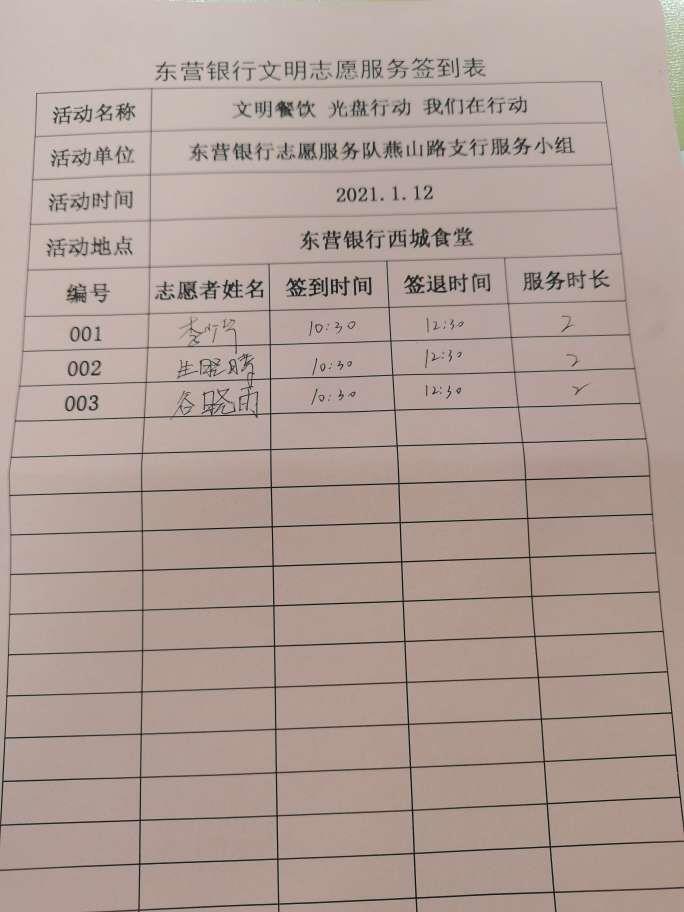 东营银行文明志愿服务签到表
活动名称 文明餐饮 光盘行动 我们在行动
活动单位 东营银行志愿服务队燕山路支行服务小组
活动时间 2021.1.12
活动地点 东营银行西城食堂
编号 志愿者姓名 签到时间 签退时间 服务时长
001 李 10:30 12:30 2
002 生晓晴 10:30 12:30 2
003 谷晓雨 10:30 12:30 2